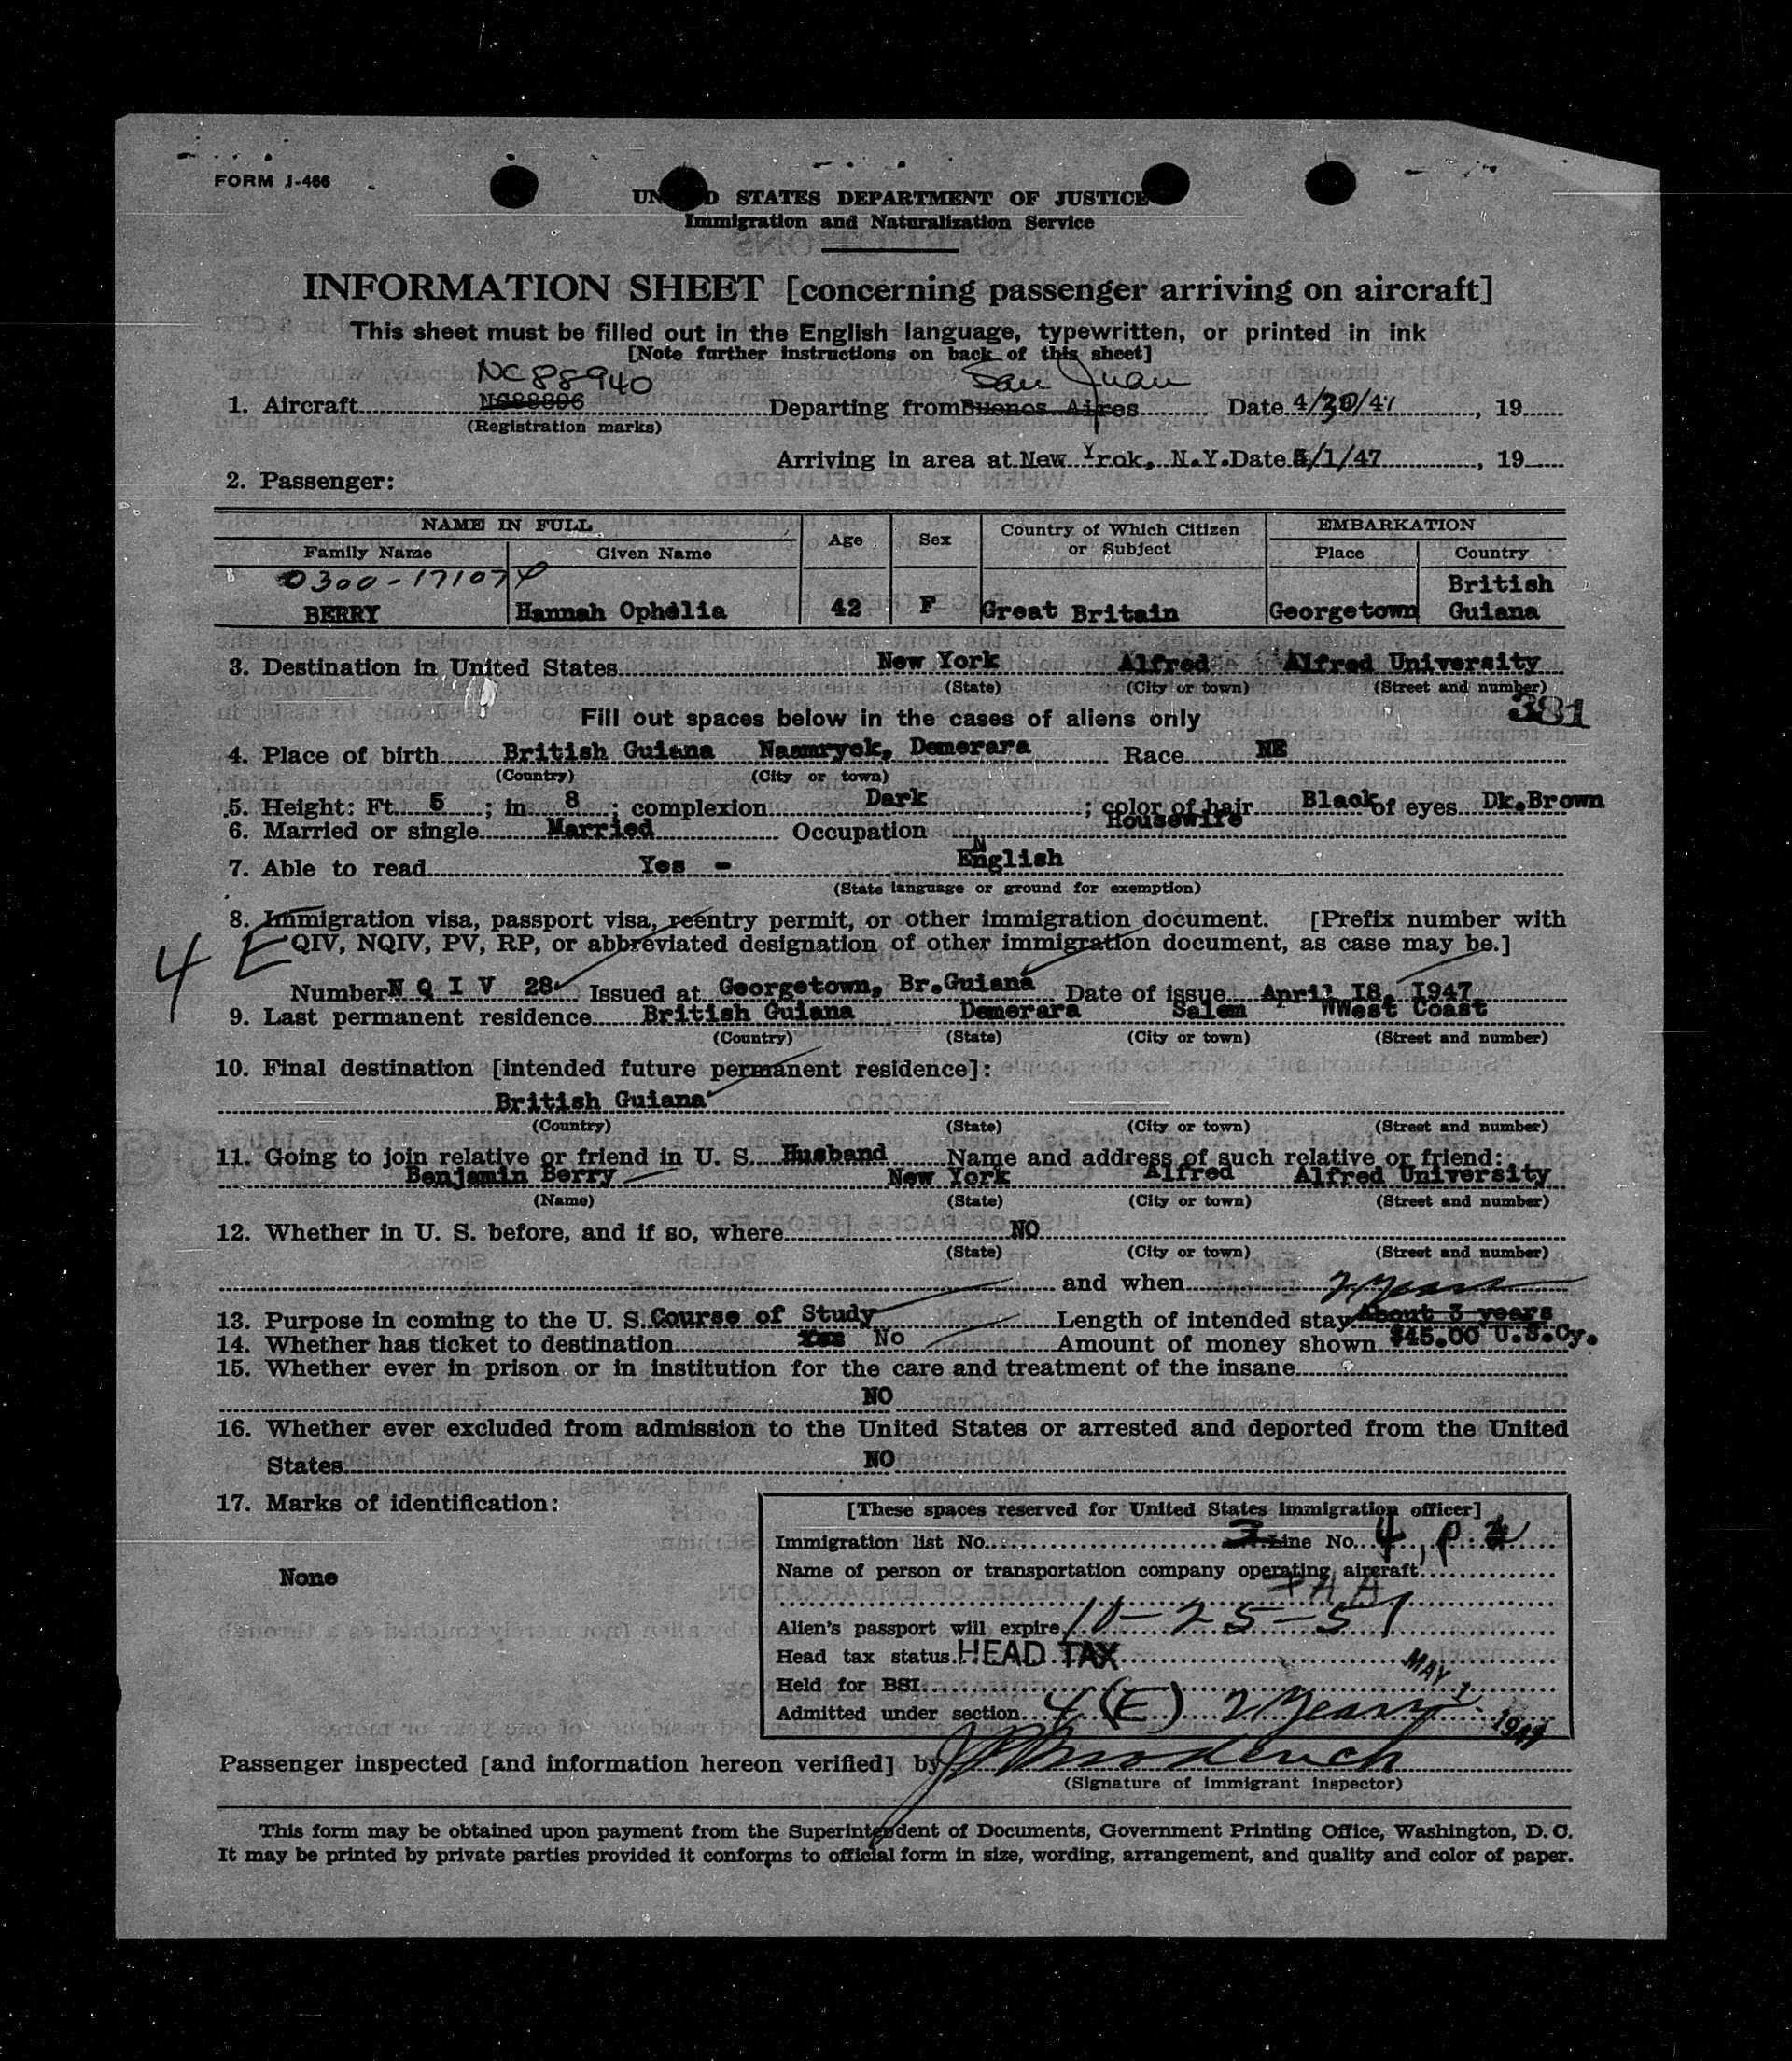 FORM I-466
UNITED STATES DEPARTMENT OF JUSTICE
Immigration and Naturalization Service
INFORMATION SHEET [concerning passenger arriving on aircraft]
This sheet must be filled out in the English language, typewritten, or printed in ink
[Note further instructions on back of this sheet]
NC88940 San Juan
1. Aircraft NC88806 Departing from Buenos Aires Date 4/30/47, 19
(Registration marks)
Arriving in area at New Yrok, N.Y. Date 5/1/47, 19
2. Passenger:
NAME IN FULL Age Sex Country of Which Citizen or Subject EMBARKATION
Family Name Given Name Place Country
0300-171074 British
BERRY Hannah Ophelia 42 F Great Britain Georgetown Guiana
3. Destination in United States New York Alfred Alfred University
(State) (City or town) (Street and number)
381
Fill out spaces below in the cases of aliens only
4. Place of birth British Guiana Naamryck, Demerara Race NE
(Country) (City or town)
5. Height: Ft. 5; in 8; complexion Dark; color of hair Black of eyes Dk.Brown
6. Married or single Married Occupation Housewife
7. Able to read Yes - English
(State language or ground for exemption)
8. Immigration visa, passport visa, reentry permit, or other immigration document. [Prefix number with
4 E QIV, NQIV, PV, RP, or abbreviated designation of other immigration document, as case may be.]
Number N Q I V 28 Issued at Georgetown, Br.Guiana Date of issue April I8, I947
9. Last permanent residence British Guiana Demerara Salem WWest Coast
(Country) (State) (City or town) (Street and number)
10. Final destination [intended future permanent residence]:
British Guiana
(Country) (State) (City or town) (Street and number)
11. Going to join relative or friend in U. S. Husband Name and address of such relative or friend:
Benjamin Berry New York Alfred Alfred University
(Name) (State) (City or town) (Street and number)
12. Whether in U. S. before, and if so, where NO
(State) (City or town) (Street and number)
and when
2 years
13. Purpose in coming to the U. S. Course of Study Length of intended stay About 3 years
14. Whether has ticket to destination Yes No Amount of money shown $45.00 U.S.Cy.
15. Whether ever in prison or in institution for the care and treatment of the insane
NO
16. Whether ever excluded from admission to the United States or arrested and deported from the United
States NO
17. Marks of identification:
None
[These spaces reserved for United States immigration officer]
Immigration list No. Line No. 4, p.
Name of person or transportation company operating aircraft
PAA
Alien's passport will expire 10-25-51
Head tax status HEAD TAX
Held for BSI
Admitted under section 4 (E) 2 years MAY 1 1947
Passenger inspected [and information hereon verified] by
(Signature of immigrant inspector)
This form may be obtained upon payment from the Superintendent of Documents, Government Printing Office, Washington, D. C.
It may be printed by private parties provided it conforms to official form in size, wording, arrangement, and quality and color of paper.